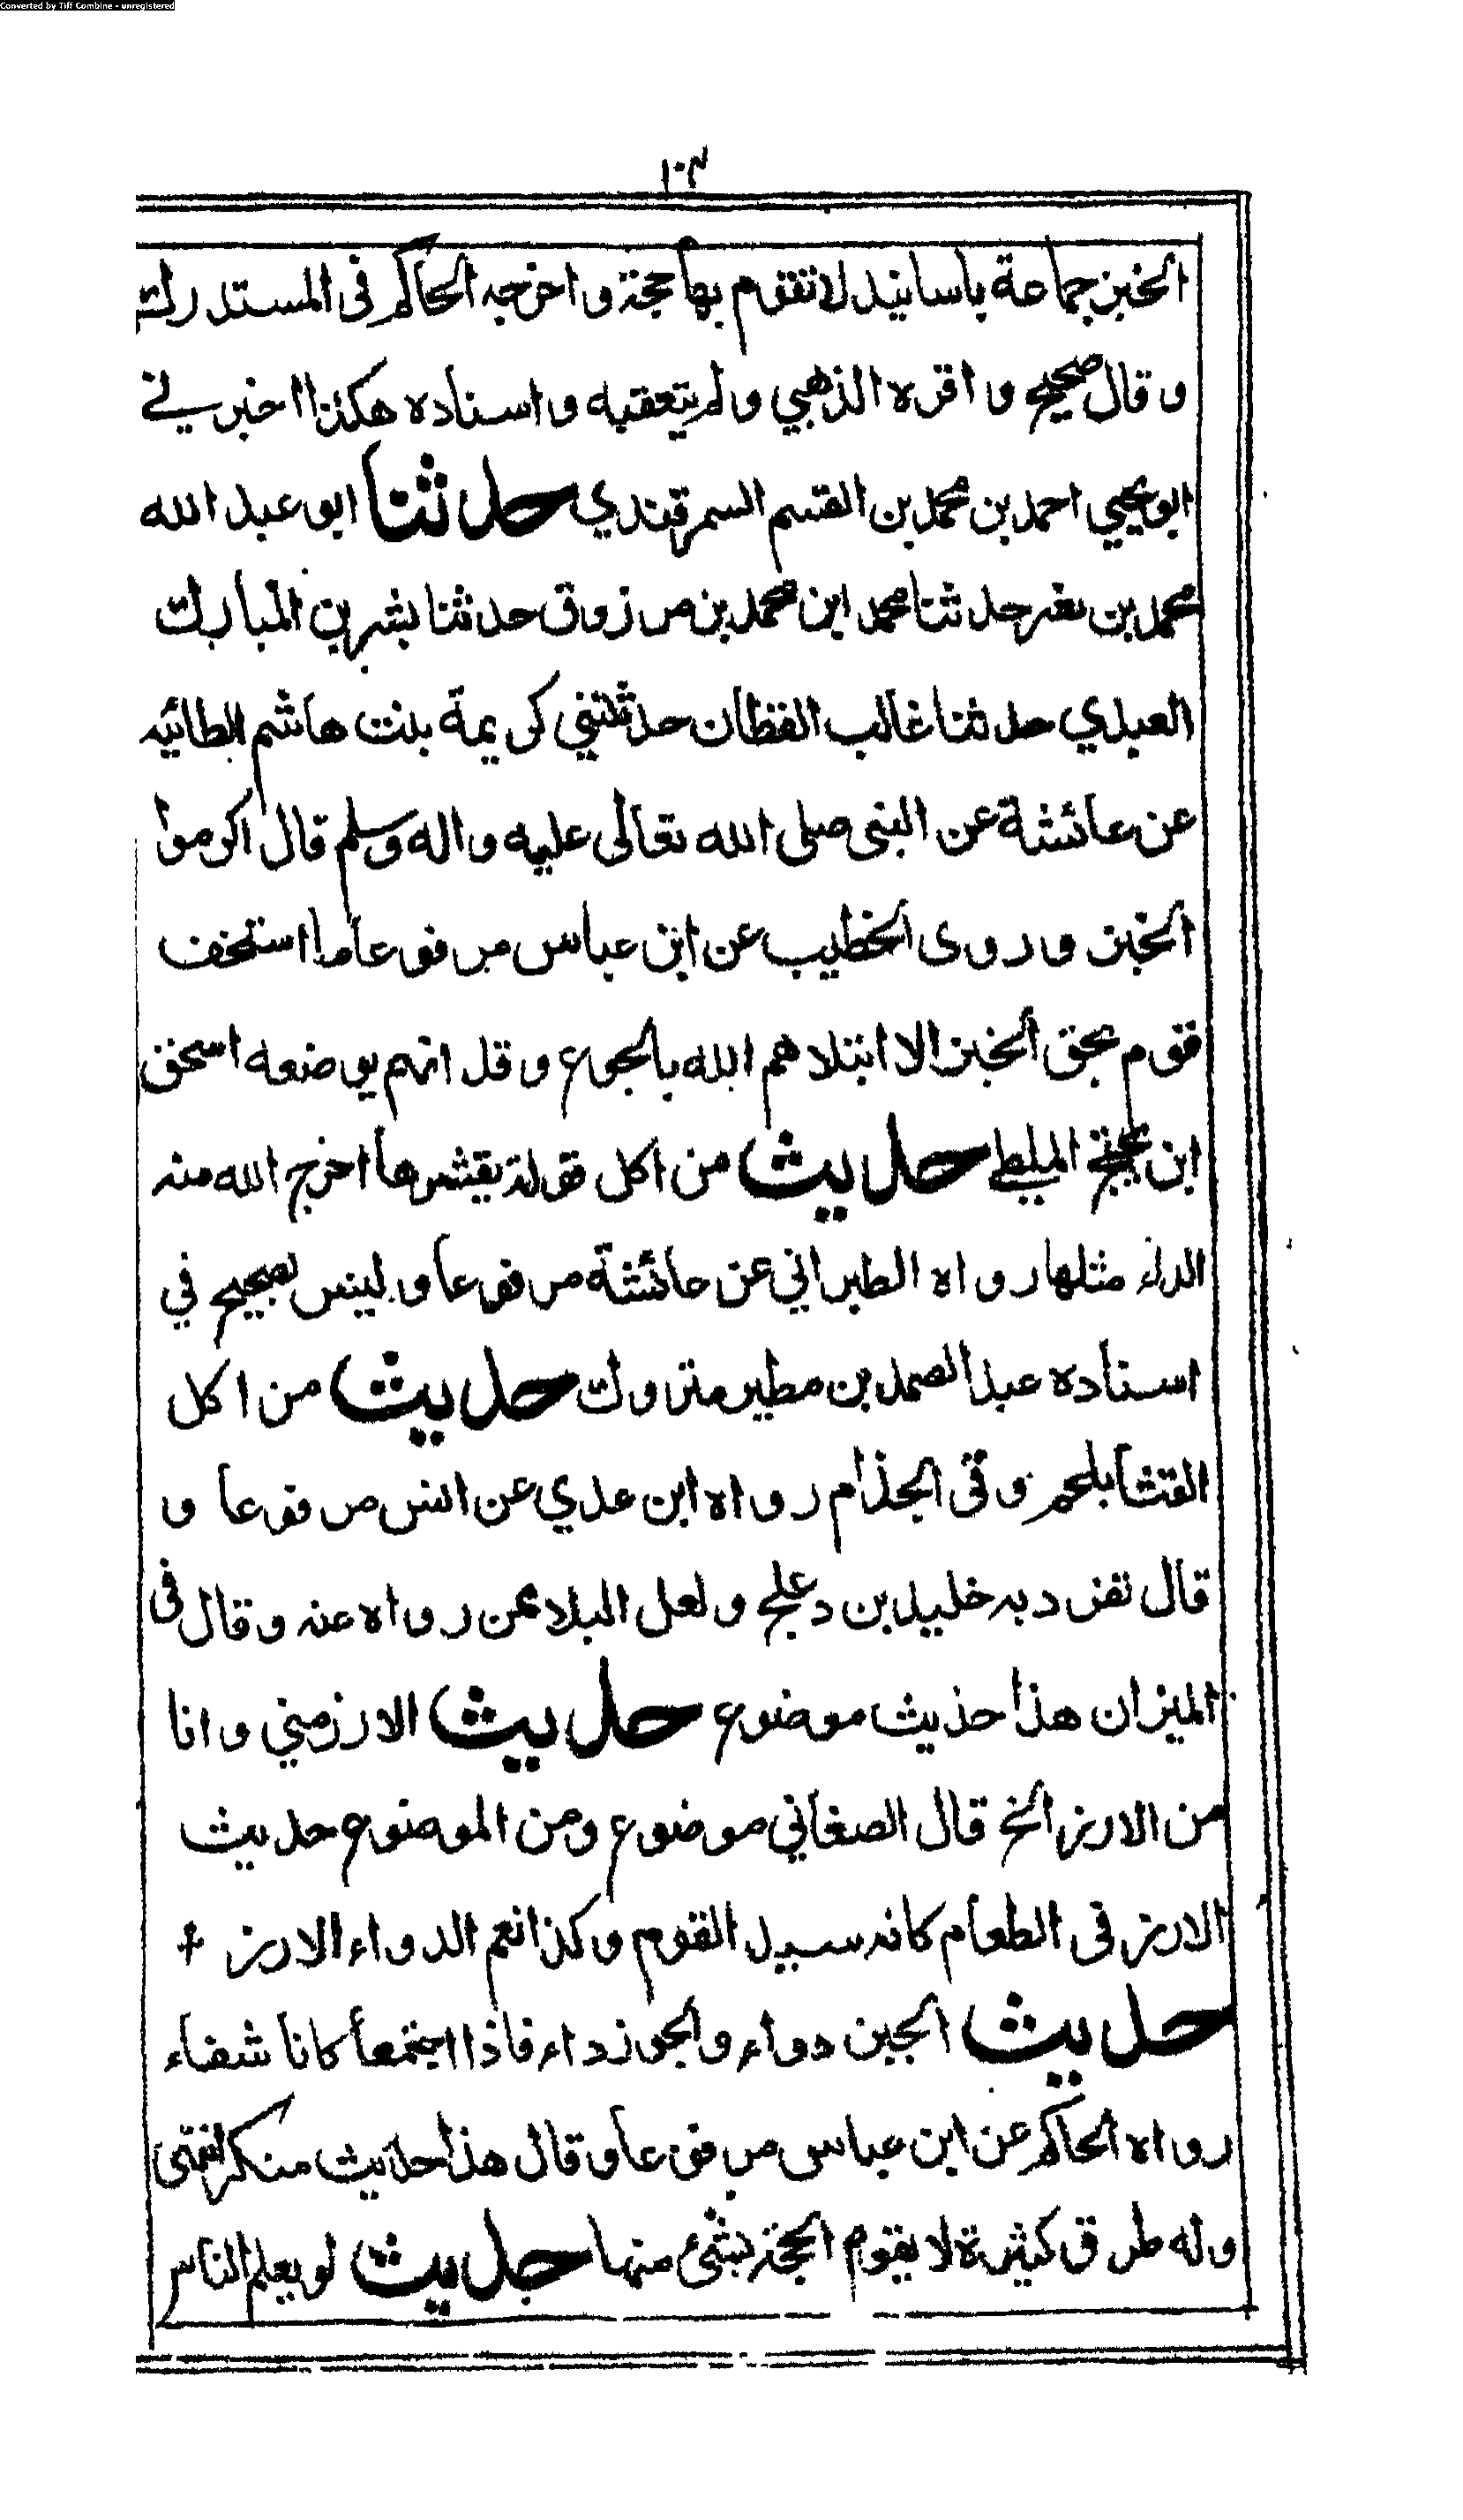 Converted by Tiff Combine - unregistered
١٠٢
الخبز جماعة باسانيد لا تقوم بها حجة و اخرجه الحاكم فى المستدرك
و قال صحيح و اقره الذهبي و لم يتعقبه و اسناده هكذا اخبرني
ابو يحيي احمد بن محمد بن القسم السمرقندي حدثنا ابو عبد الله
محمد بن نصر حدثنا محمد ابن محمد بن مرزوق حدثنا بشر بن المبارك
العبدي حدثنا غالب القطان حدثتني كريمة بنت هاشم الطائيه
عن عائشة عن النبى صلى الله تعالى عليه و اله و سلم قال اكرموا
الخبز و روى الخطيب عن ابن عباس مرفوعا ما استخف
قوم بحق الخبز الا ابتلاهم الله بالجوع و قد اتهم بوضعه اسحق
ابن يحيى الملطي حديث من اكل فولة بقشرها اخرج الله منه
الداء مثلها رواه الطبراني عن عائشة مرفوعا و ليس بصحيح في
اسناده عبد الصمد بن مطير متروك حديث من اكل
القثا بلحم وقى الجذام رواه ابن عدي عن انس مرفوعا و
قال تفرد به خليد بن دعلج و لعل البلاء ممن رواه عنه و قال فى
الميزان هذا حديث موضوع حديث الارز مني و انا
من الارز الخ قال الصغاني موضوع و من الموضوع حديث
الارز فى الطعام كانه سيد القوم و كذا نعم الدواء الارز +
حديث الجبن دواء و الجوز داء فاذا اجتمعا كانا شفاء
رواه الحاكم عن ابن عباس مرفوعا و قال هذا حديث منكر انتهى
و له طرق كثيرة لا يقوم الحجة بشئ منها حديث لو يعلم الناس